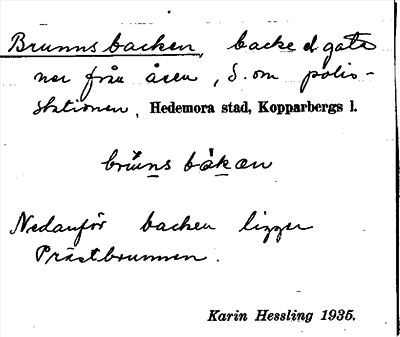 Brunnsbacken, backe o gata
ner från åsen, S. om polis-
stationen, Hedemora stad, Kopparbergs l.
brŭns bàkan
Nedanför backen ligger
Prästbrunnen.
Karin Hessling 1935.